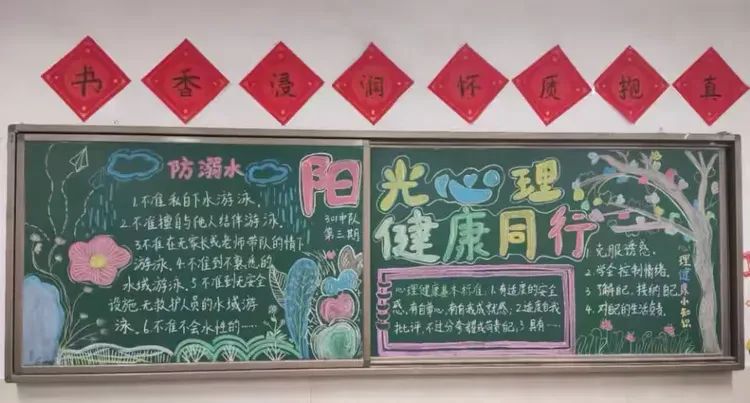 书香浸润怀质抱真
防溺水
1.不准私自下水游泳、
2.不准擅自与他人结伴游泳、
3.不准在无家长或老师带队的情下
游泳、4.不准到不熟悉的
水域游泳、5.不准到无安全
设施、无救护人员的水域游
泳、6.不准不会水性的……
阳光心理
健康同行
301中队
第三期
心理健康基本标准、1.有适度的安全
感,有自尊心,有自我成就感;2.适度自我
批评,不过分夸耀或苛责自己;3.具有……
克服诱惑.
2.学会控制情绪.
3.了解自己,接纳自己
4.对自己的生活负责.
心理健康小知识